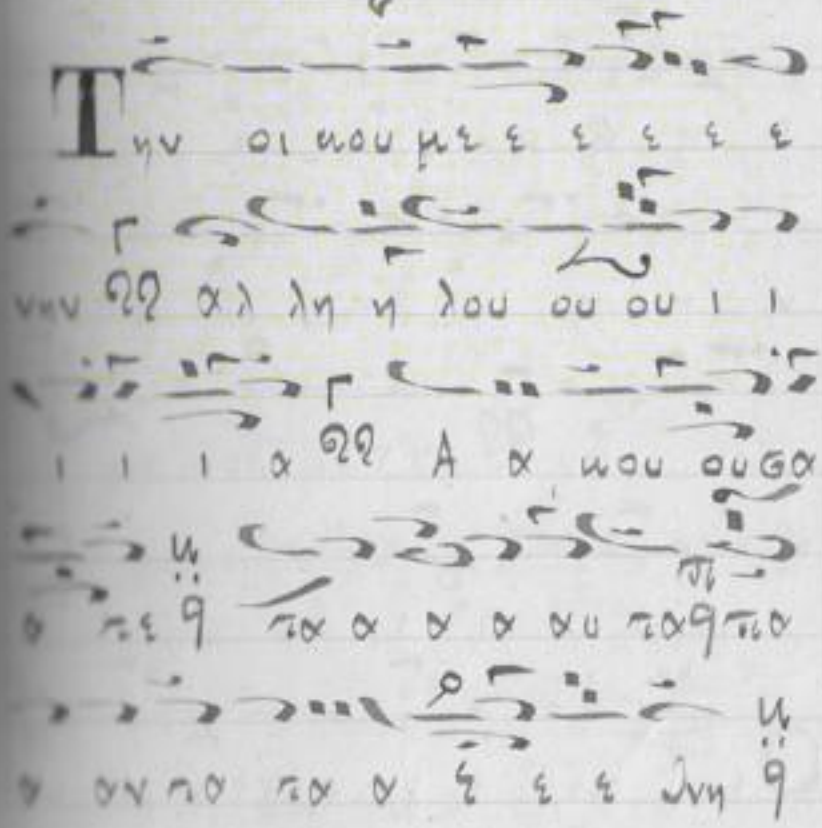 Την οι κου με ε ε ε ε ε
νην αλ λη η λου ου ου ι ι
ι ι ι α Α α κου ουσα
α πε πα α α α αυ πα πα
α αν πα πα α ε ε ε νη